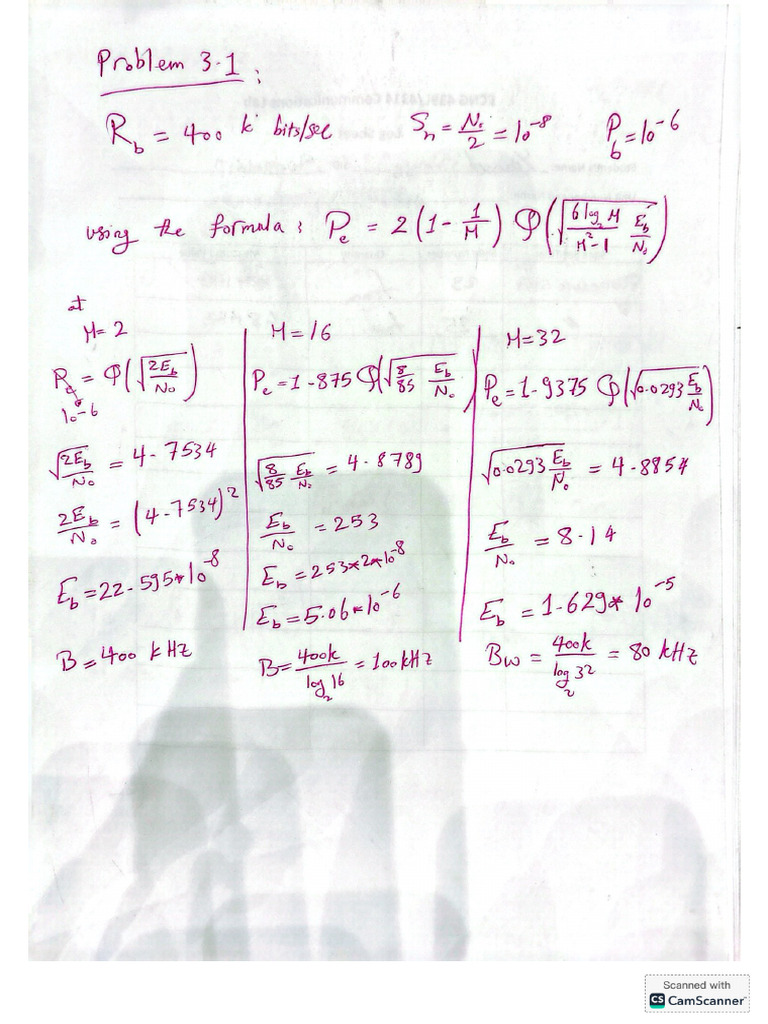 Problem 3.1 :
R_b = 400 k bits/sec   S_n = N_0/2 = 10^-8   P_b = 10^-6
using the formula : P_e = 2 (1 - 1/M) Q(√(6 log_2 M / (M^2 - 1) E_b/N_0))
at
M = 2
P_e = Q(√(2E_b/N_0))
10^-6
√(2E_b/N_0) = 4.7534
2E_b/N_0 = (4.7534)^2
E_b = 22.595*10^-8
B = 400 kHz
M = 16
P_e = 1.875 Q(√(8/85 E_b/N_0))
√(8/85 E_b/N_0) = 4.8789
E_b/N_0 = 253
E_b = 253*2*10^-8
E_b = 5.06*10^-6
B = 400k/log_2 16 = 100 kHz
M = 32
P_e = 1.9375 Q(√(0.0293 E_b/N_0))
√(0.0293 E_b/N_0) = 4.8854
E_b/N_0 = 8.14
E_b = 1.629*10^-5
Bw = 400k/log_2 32 = 80 kHz
Scanned with
CS CamScanner